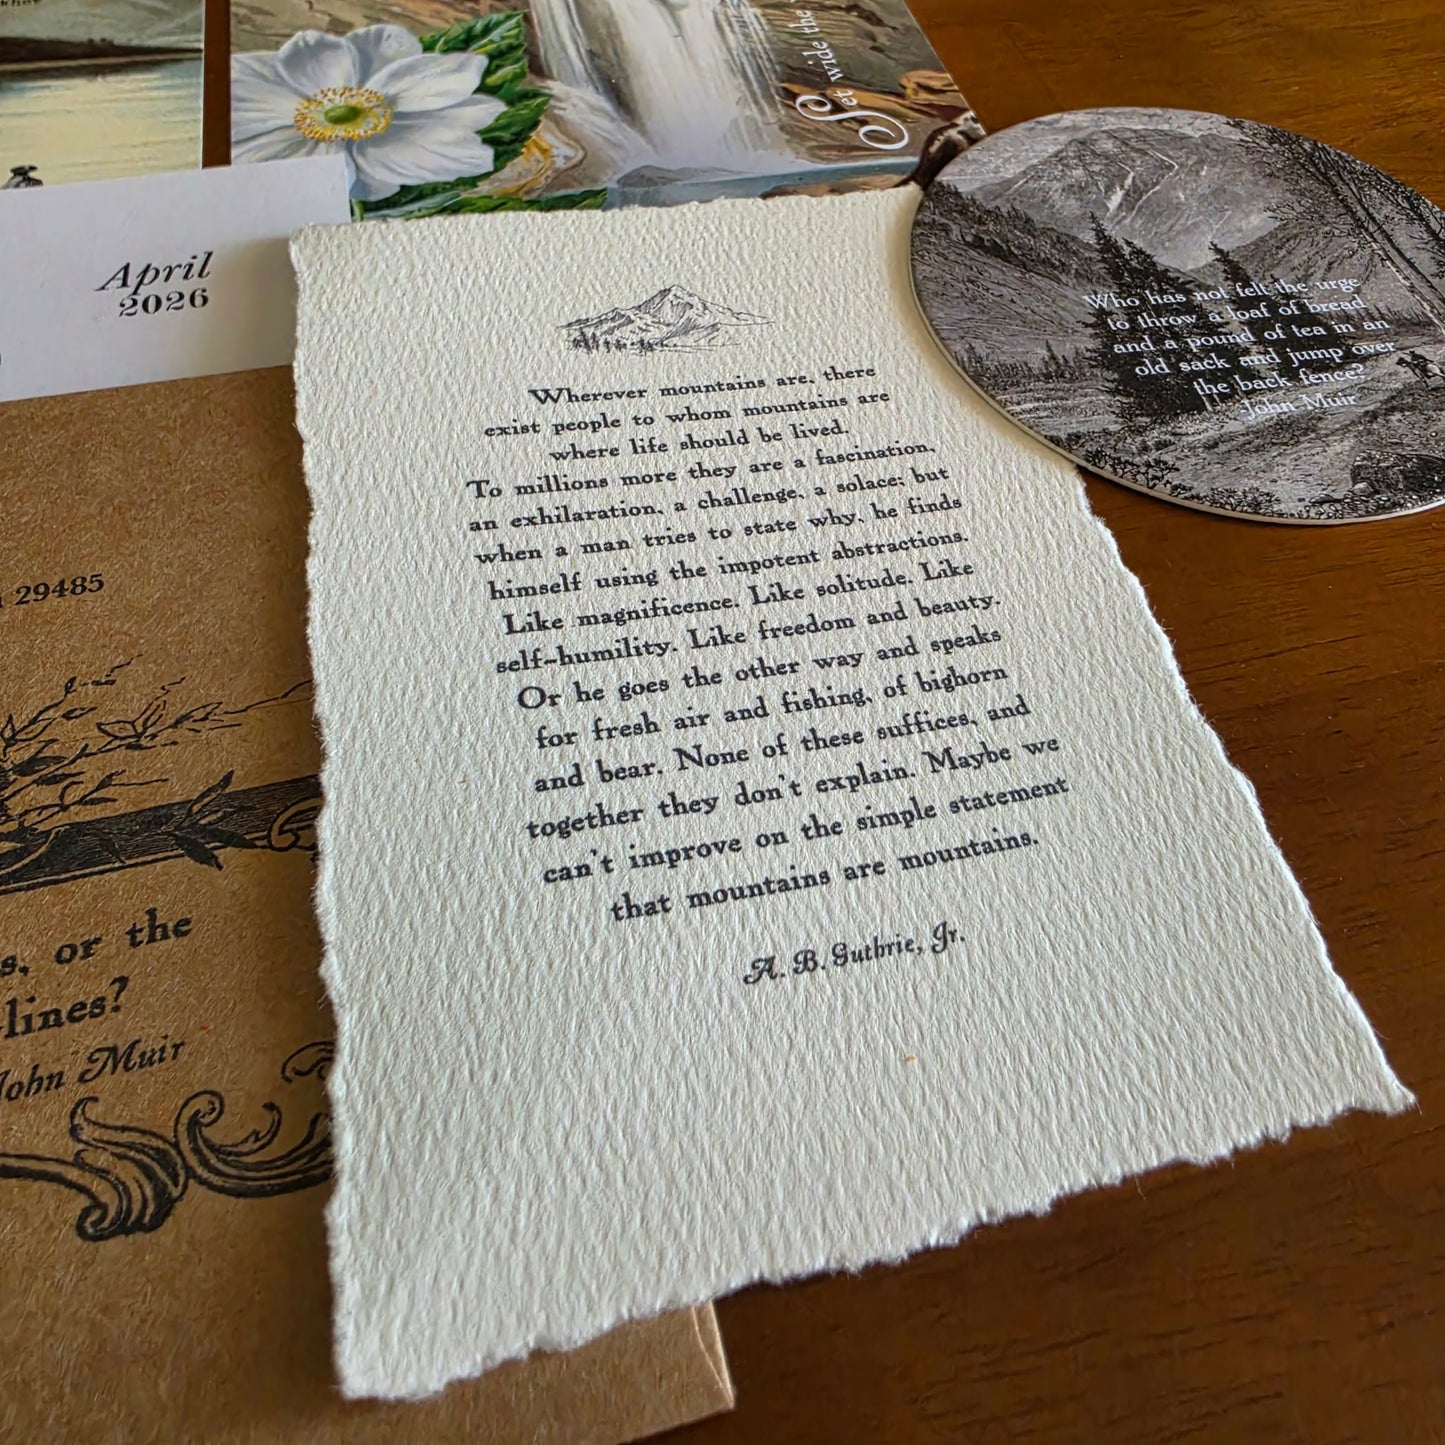 Set wide the
April
2026
Who has not felt the urge
to throw a loaf of bread
and a pound of tea in an
old sack and jump over
the back fence?
-John Muir
Wherever mountains are, there
exist people to whom mountains are
where life should be lived.
To millions more they are a fascination,
an exhilaration, a challenge, a solace; but
when a man tries to state why, he finds
himself using the impotent abstractions.
Like magnificence. Like solitude. Like
self-humility. Like freedom and beauty.
Or he goes the other way and speaks
for fresh air and fishing, of bighorn
and bear. None of these suffices, and
together they don't explain. Maybe we
can't improve on the simple statement
that mountains are mountains.
A. B. Guthrie, Jr.
29485
s, or the
-lines?
John Muir